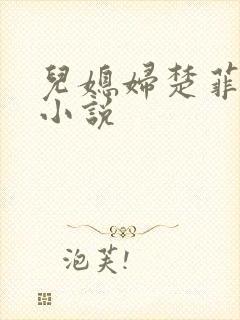 兒媳婦楚菲
小說
泡芙!